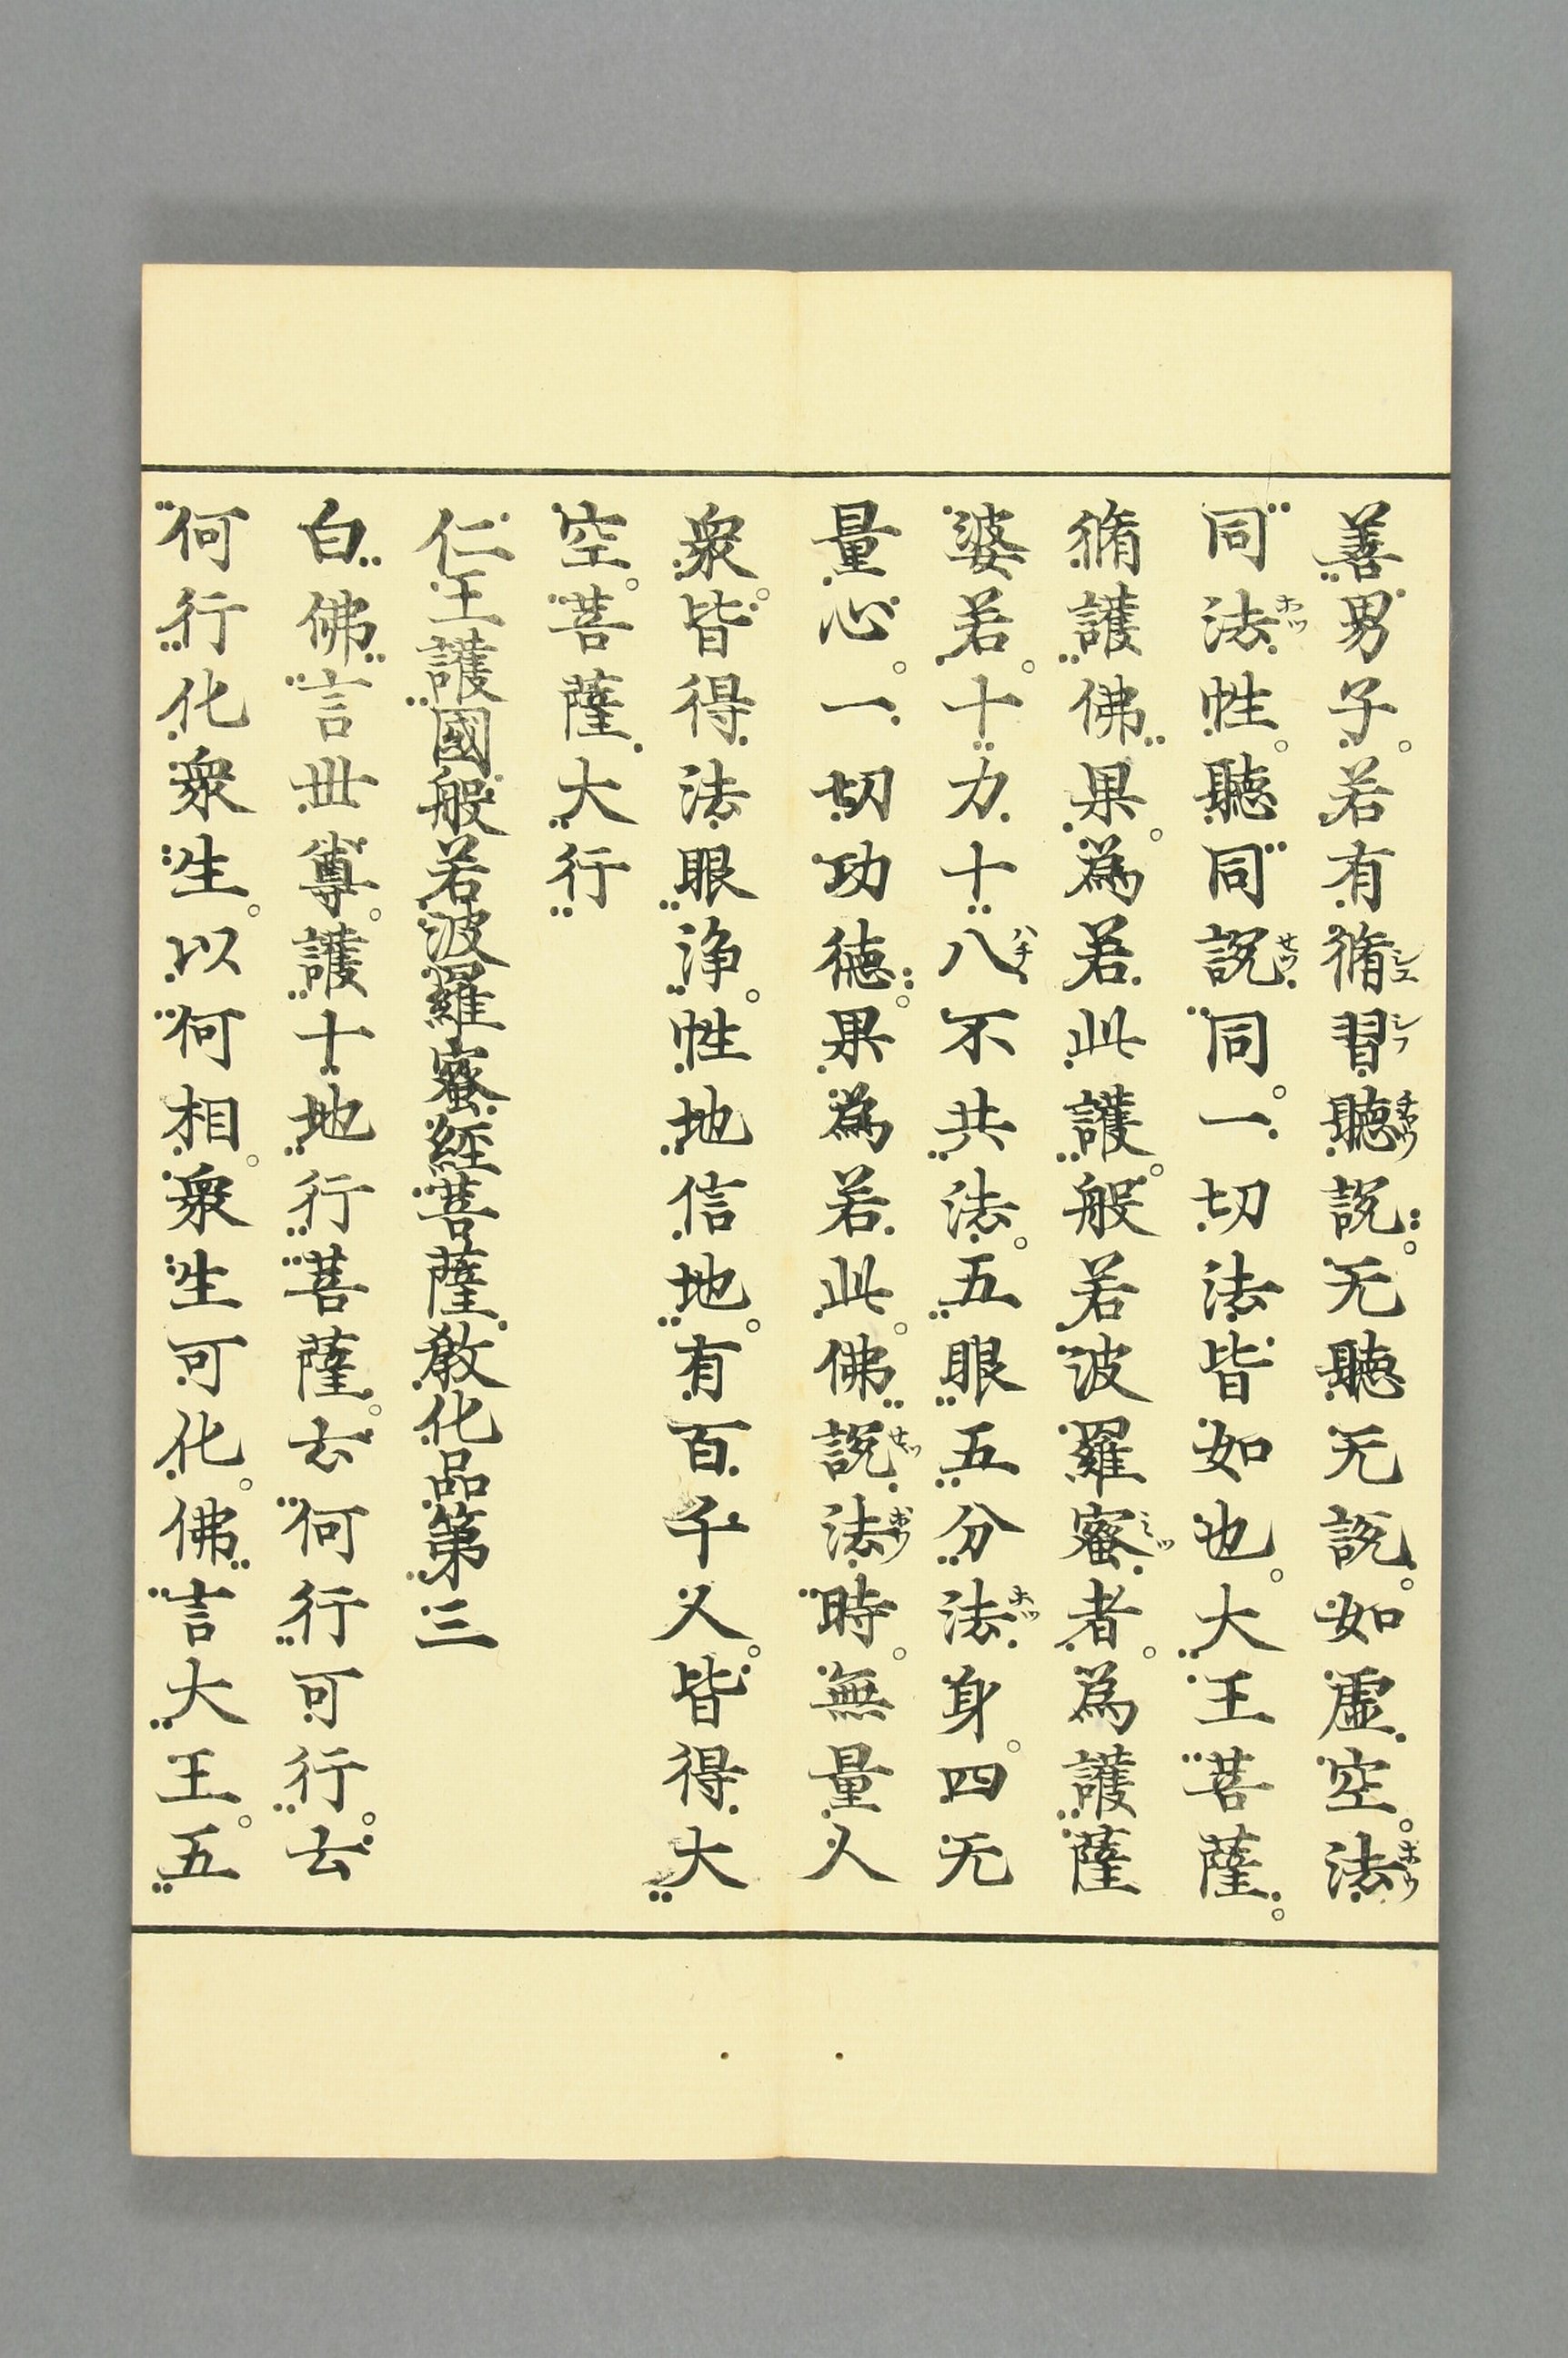 善男子。若有脩習聽説。无聽无説。如虚空。法
同法性。聽同説同。一切法皆如也。大王菩薩。
脩護佛果。為若此護。般若波羅蜜者。為護薩
婆若。十力十八不共法。五眼五分法身。四无
量心。一切功徳。果為若此。佛説法時。無量人
衆。皆得法眼浄。性地信地。有百千人。皆得大
空。菩薩大行
仁王護國般若波羅蜜經菩薩教化品第三
白佛言世尊。護十地行菩薩。云何行可行。云
何行化衆生。以何相。衆生可化。佛言大王。五